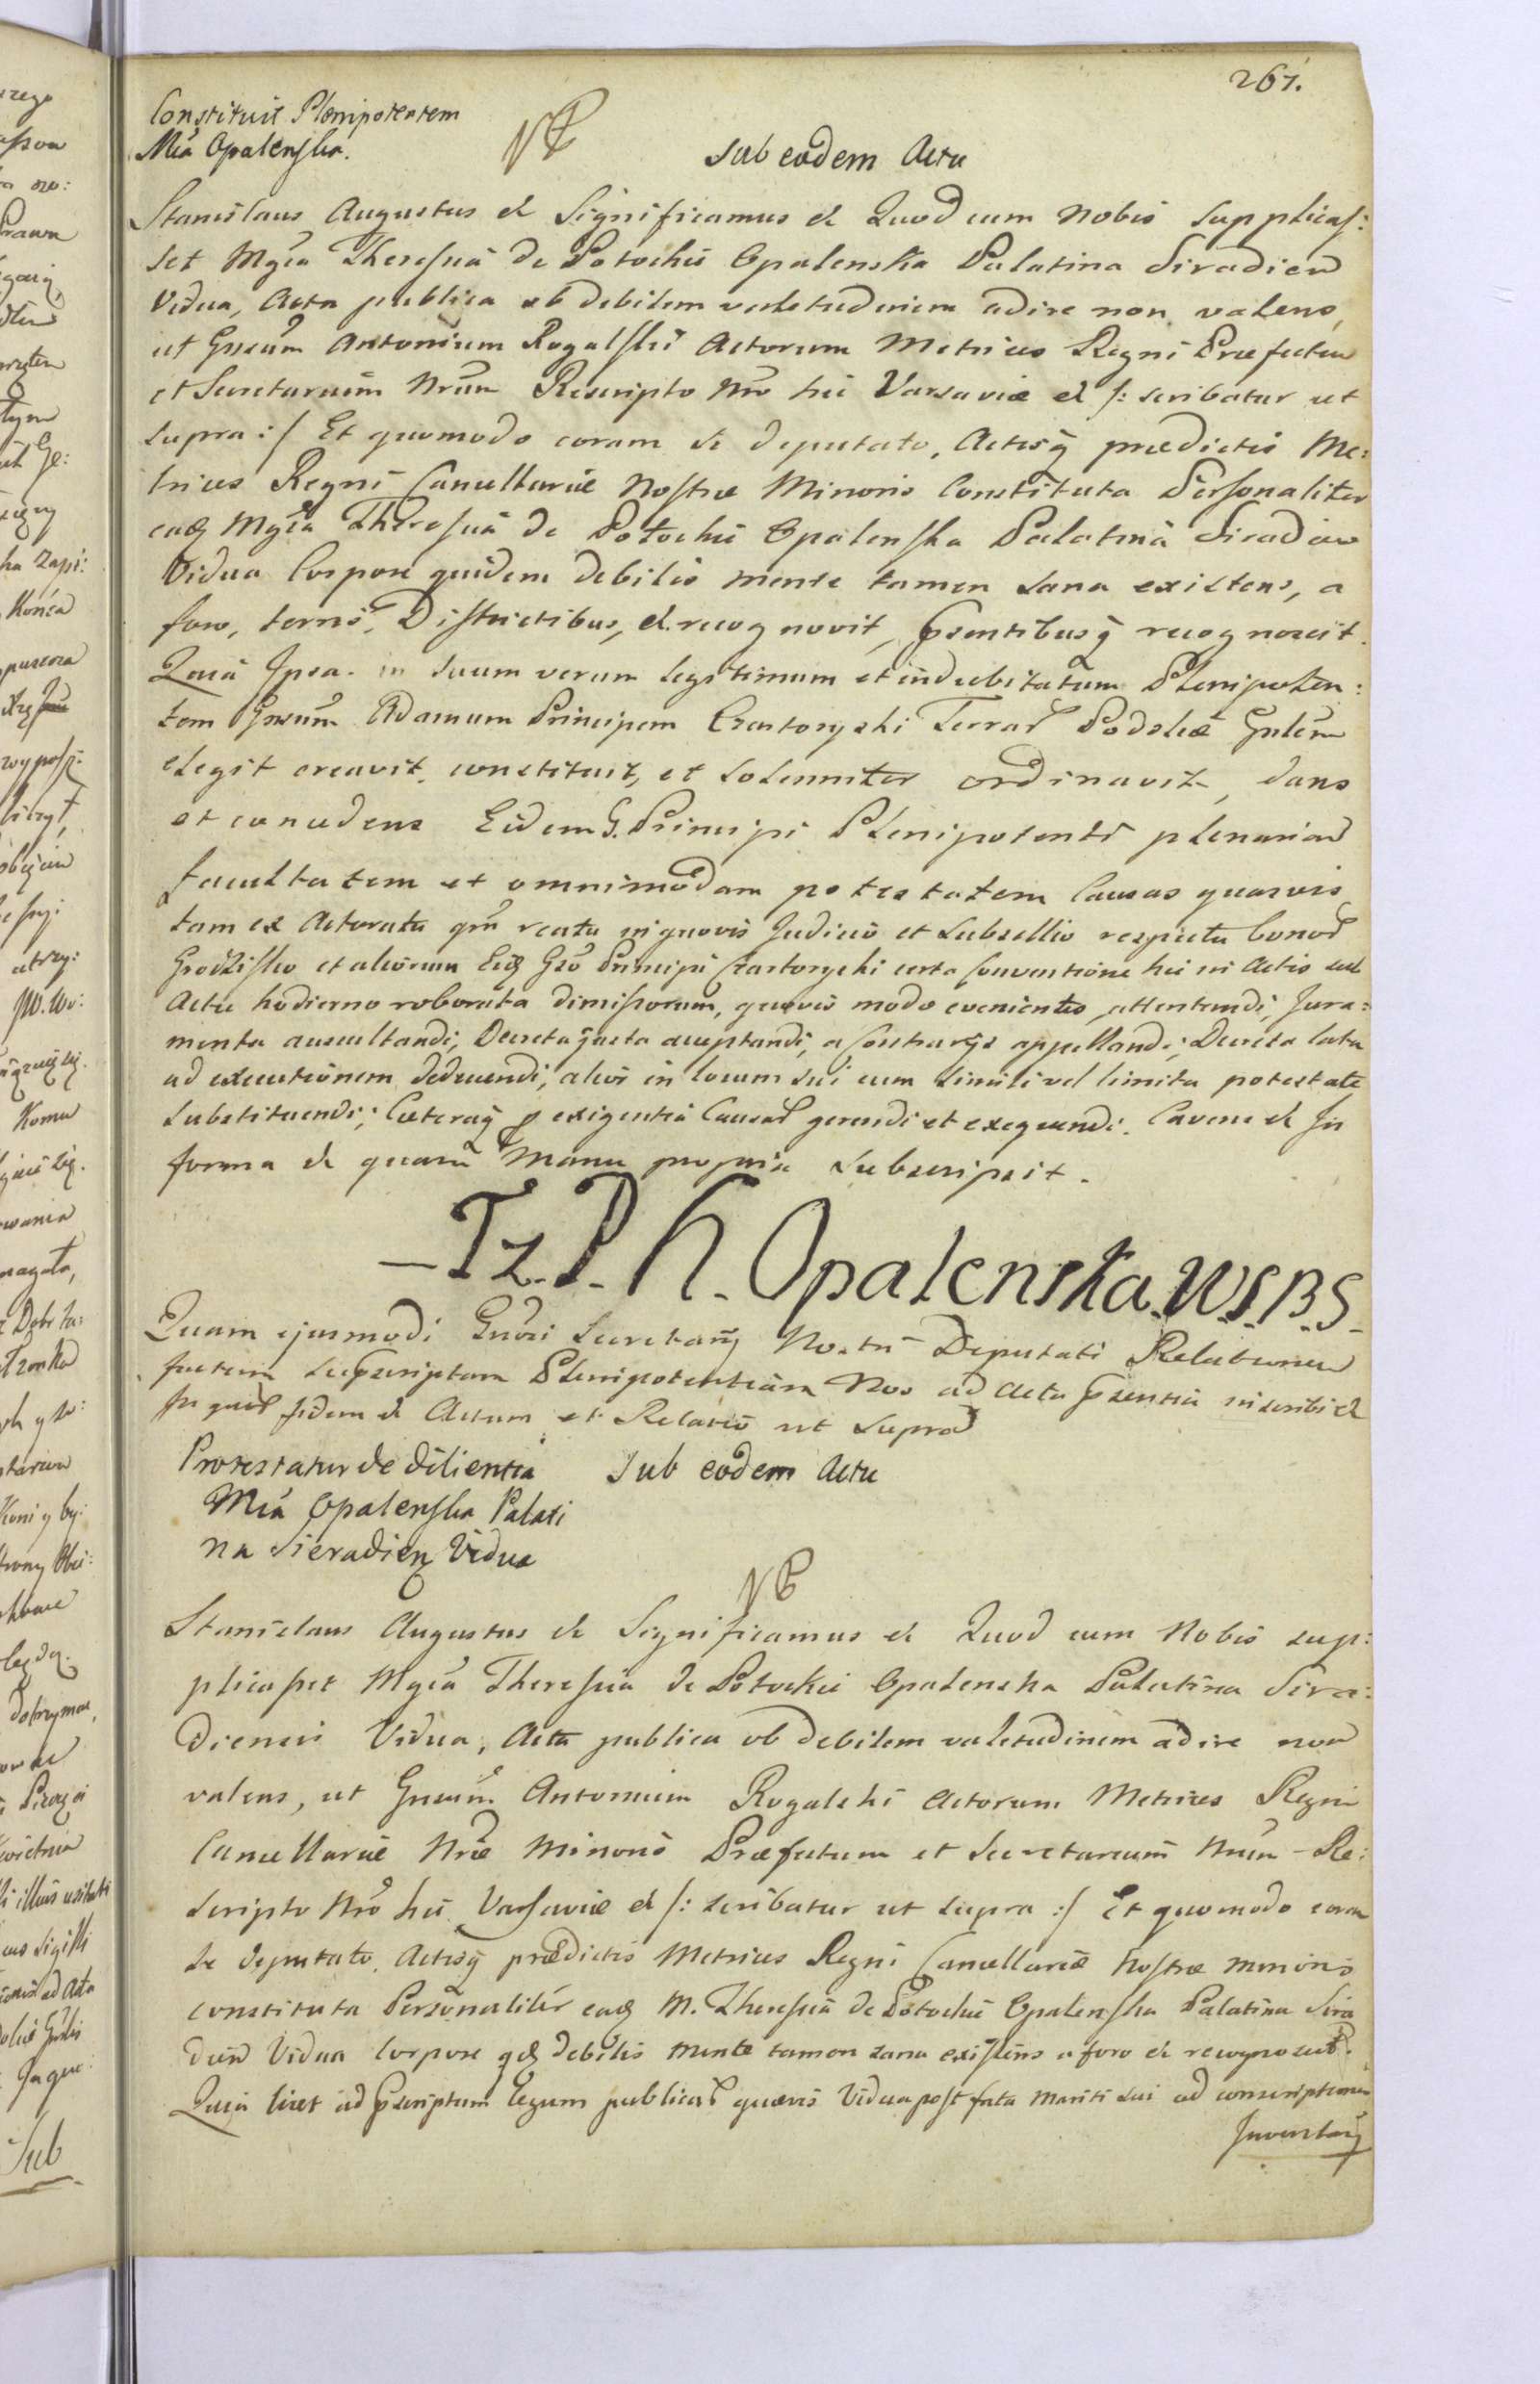 267.
Constituit Plenipotentem
Mca Opalenska.
NB
Sub eodem Actu
Stanislaus Augustus et Significamus et Quod cum Nobis supplicas:
set Mgca Theresia de Potockie Opalenska Palatina Siradien
Vidua, Acta publica ob debilem valetudinem adire non valens,
ut Gnsum Antonium Rogalski Actorum Metrices Regni Præfectum
et Secretarium Nrum Rescripto Nro hic Varsaviæ et /: scribatur ut
supra :/ Et quomodo coram se deputato, Actisq prædictis Me:
trices Regni Cancellariæ Nostræ Minoris Constituta Personaliter
eadg Mgca Theresia de Potockie Opalenska Palatina Siradien
Vidua Corpore quidem debilis mente tamen sana existens, a
foro, terris, Districtibus, et recognovit, Psentibusq recognoscit.
Quia Ipsa in suum verum legitimum et indubitatum Plenipoten:
tem Gnsum Adamum Principem Czartoryski Terrar Podoliæ Gnlem
elegit creavit, constituit, et solemniter ordinavit, dans
et concedens Eidem G. Principi Plenipotenti plenariam
facultatem et omnimodam potestatem Causas quasvis
tam ex Actoratu qm reatu in quovis Judicio et Subsellio respectu bonor
Grodzisko et aliorum Eidg Gso Principi Czartoryski certa Conventione hic in Actis sub
Actu hodierno roborata dimissorum, quovis modo evenientes, attentandi, Jura:
menta auscultandi, Decreta quta acceptandi, a Contrarys appellandi, Decreta lata
ad executionem deducendi, alios in locum sui cum simili vel limita potestate
substituendi; Cæteraq p exigentia Causar gerendi et exequendi. Cavens et In
forma et quam Manu propria subscripsit.
– T. z. P. H. Opalenska. W. S. B. S.
Quam ejusmodi Gnsi Secretary Nostri Deputati Relationem
factam supscriptam Plenipotentiam Nos ad Acta Psentia inscribi et
In quor fidem et Actum et Relatio ut supra
Protestatur de dilientia
Mca Opalenska Palati
na Sieradien Vidua
Sub eodem Actu
NB
Stanislaus Augustus et Significamus et Quod cum Nobis sup:
plicasset Mgca Theresia de Potockie Opalenska Palatina Sira:
diensis Vidua, Acta publica ob debilem valetudinem adire non
valens, ut Gnsum Antonium Rogalski Actorum Metrices Regni
Cancellariæ Nræ Minoris Præfectum et Secretarium Nrum Re:
scripto Nro hic Varsaviæ et /: scribatur ut supra :/ Et quomodo coram
se deputato, Actisq prædictis Metrices Regni Cancellariæ Nostræ Minoris
constituta Personaliter eadg M. Theresia de Potockie Opalenska Palatina Sira
dien Vidua Corpore qdg debilis mente tamen sana existens a foro et recognoscit.
Quia licet ad Pscriptum Legum publicar quævis Vidua post fata Mariti sui ad conscriptionem
Inventary